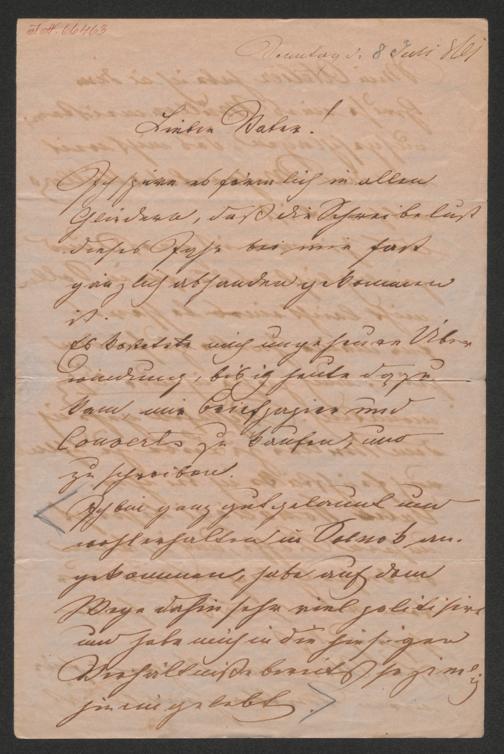 J. N. 66463
Sonntag d. 8 Juli 861
Lieber Vater!
Ich spüre es förmlich in allen
Gliedern, daß die Schreibelust
dieses Jahr bei mir fast
gänzlich abhanden gekommen
ist.
Es kostete mich ungeheure Über
windung, bis ich heute dazu
kam, mir Briefpapier und
Couverts zu kaufen, und
zu schreiben.
Ich bin ganz gut gelaunt und
wohlerhalten in Szolnok an-
gekommen, habe auf dem
Wege dahin sehr viel politisirt
und habe mich in die hiesigen
Verhältniße bereits so ziemlich
hineingelebt.